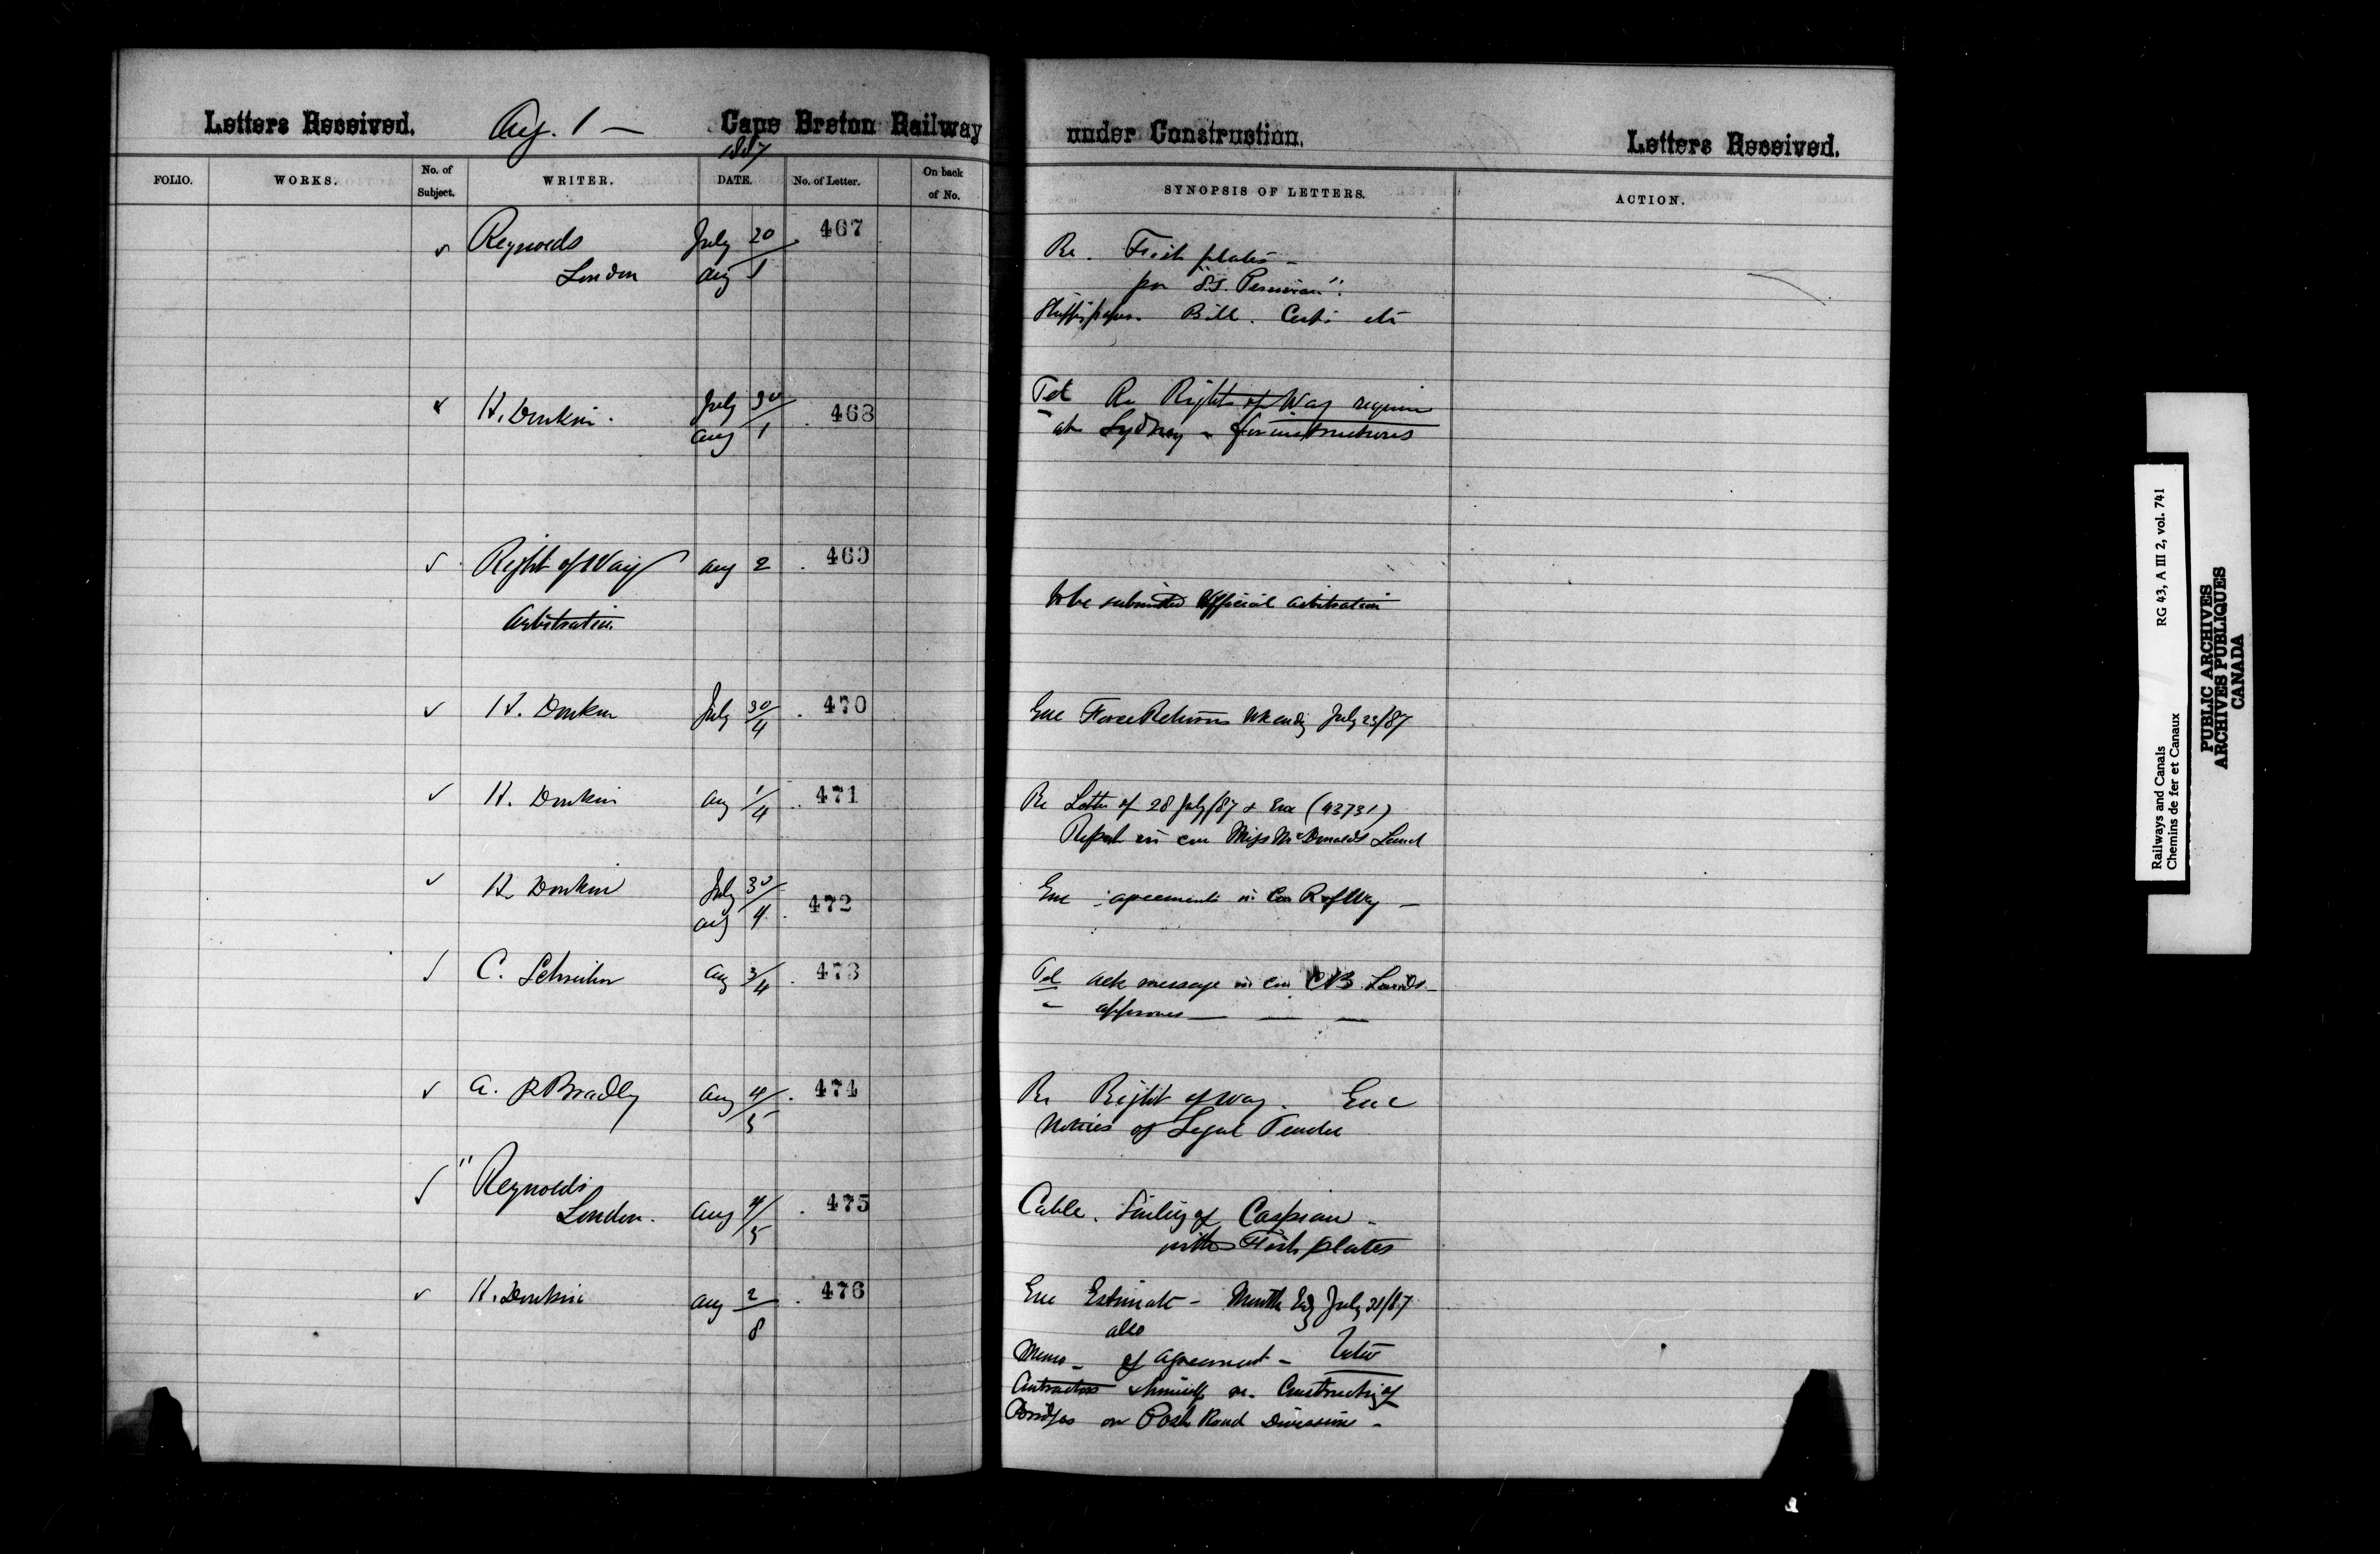 Letters Received. Aug. 1 — Cape Breton Railway under Construction. Letters Received.
1887
FOLIO. WORKS. No. of Subject. WRITER. DATE. No. of Letter. On back of No. SYNOPSIS OF LETTERS. ACTION.
Reynolds July 20 467
London Aug 1
Re. Fish plates –
per "S.S. Peruvian".
Bill. Certs etc
H. Donkin. July 30 468
Aug 1
Tel Re Right of Way required
at Sydney – for instructions
Right of Way Aug 2 469
Arbitration
To be submitted Official Arbitration
H. Donkin July 30/4 470
Enc Force Returns Wk endg July 23/87
H. Donkin Aug 1/4 471
Re Letter of 28 July/87 & Enc (43731)
Report in con Miss McDonalds Land
H. Donkin July 30 472
Aug 4
Enc agreements in Con R of Way –
C. Schreiber Aug 3/4 473
Tel Ack message in con CB Lands –
approves — — —
A. P Bradley Aug 4/5 474
Re Right of way. Enc
Notices of Legal Tender
" Reynolds
London. Aug 4/5 475
Cable. Sailing of Caspian –
with Fish plates
H. Donkin Aug 2/8 476
Enc Estimate – Month Edg July 31/87
also
Memo – of agreement –
Contractors & himself re. Constructing of
Bridges on Post Road Division –
Railways and Canals RG 43, A III 2, vol. 741
Chemins de fer et Canaux
PUBLIC ARCHIVES
ARCHIVES PUBLIQUES
CANADA